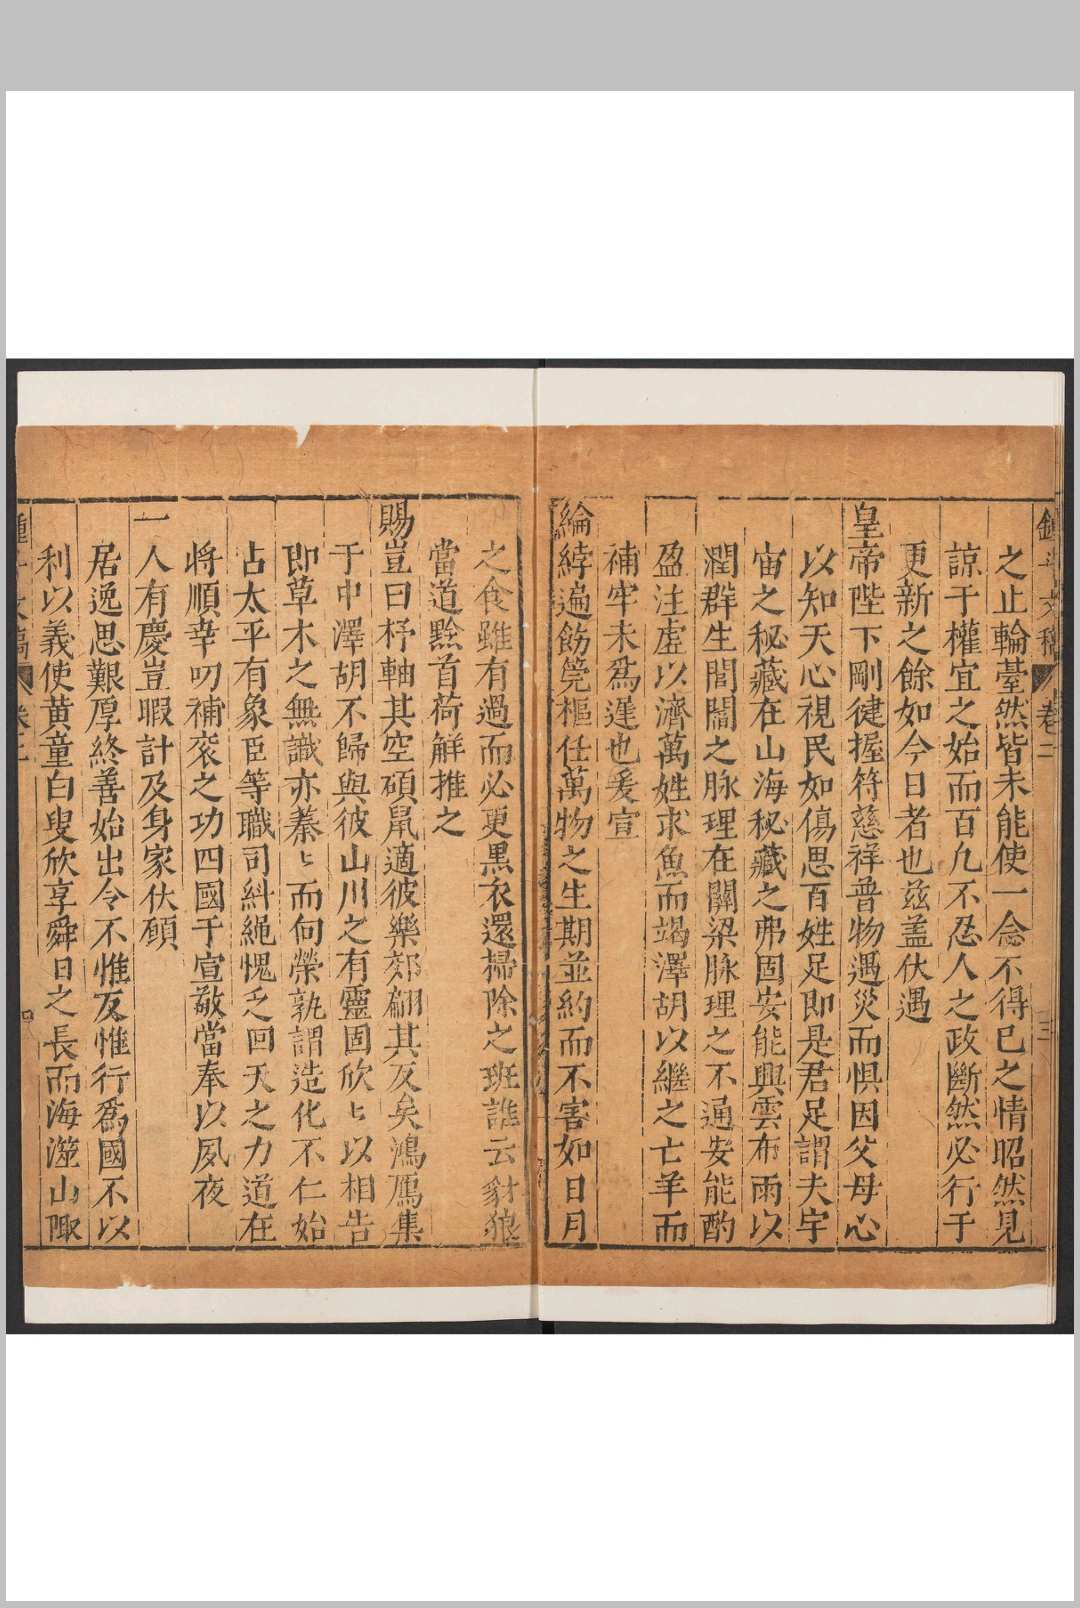 文稿 卷二 三
之止輪臺然皆未能使一念不得已之情昭然見
諒于權宜之始而百九不忍人之政斷然必行于
更新之餘如今日者也茲盖伏遇
皇帝陛下剛健握符慈祥普物遇災而惧因父母心
以知天心視民如傷思百姓足即是君足謂夫宇
宙之秘藏在山海秘藏之弗固安能興雲布雨以
潤群生閭閻之脉理在關梁脉理之不通安能酌
盈注虛以濟萬姓求魚而竭澤胡以繼之亡羊而
補牢未爲遲也爰宣
綸綍遍飭筦樞任萬物之生期並約而不害如日月
之食雖有過而必更黒衣還掃除之班誰云豺狼
當道黔首荷觧推之
賜豈曰杼軸其空碩鼠適彼樂郊翩其反矣鴻鴈集
于中澤胡不歸與彼山川之有靈固欣〻以相告
即草木之無識亦蓁〻而向榮孰謂造化不仁始
占太平有象臣等職司糾繩愧乏回天之力道在
將順幸叨補衮之功四國于宣敬當奉以夙夜
一人有慶豈暇計及身家伏願
居逸思艱厚終善始出令不惟反惟行爲國不以
利以義使黄童白叟欣享舜日之長而海澨山陬
文稿 卷二 四